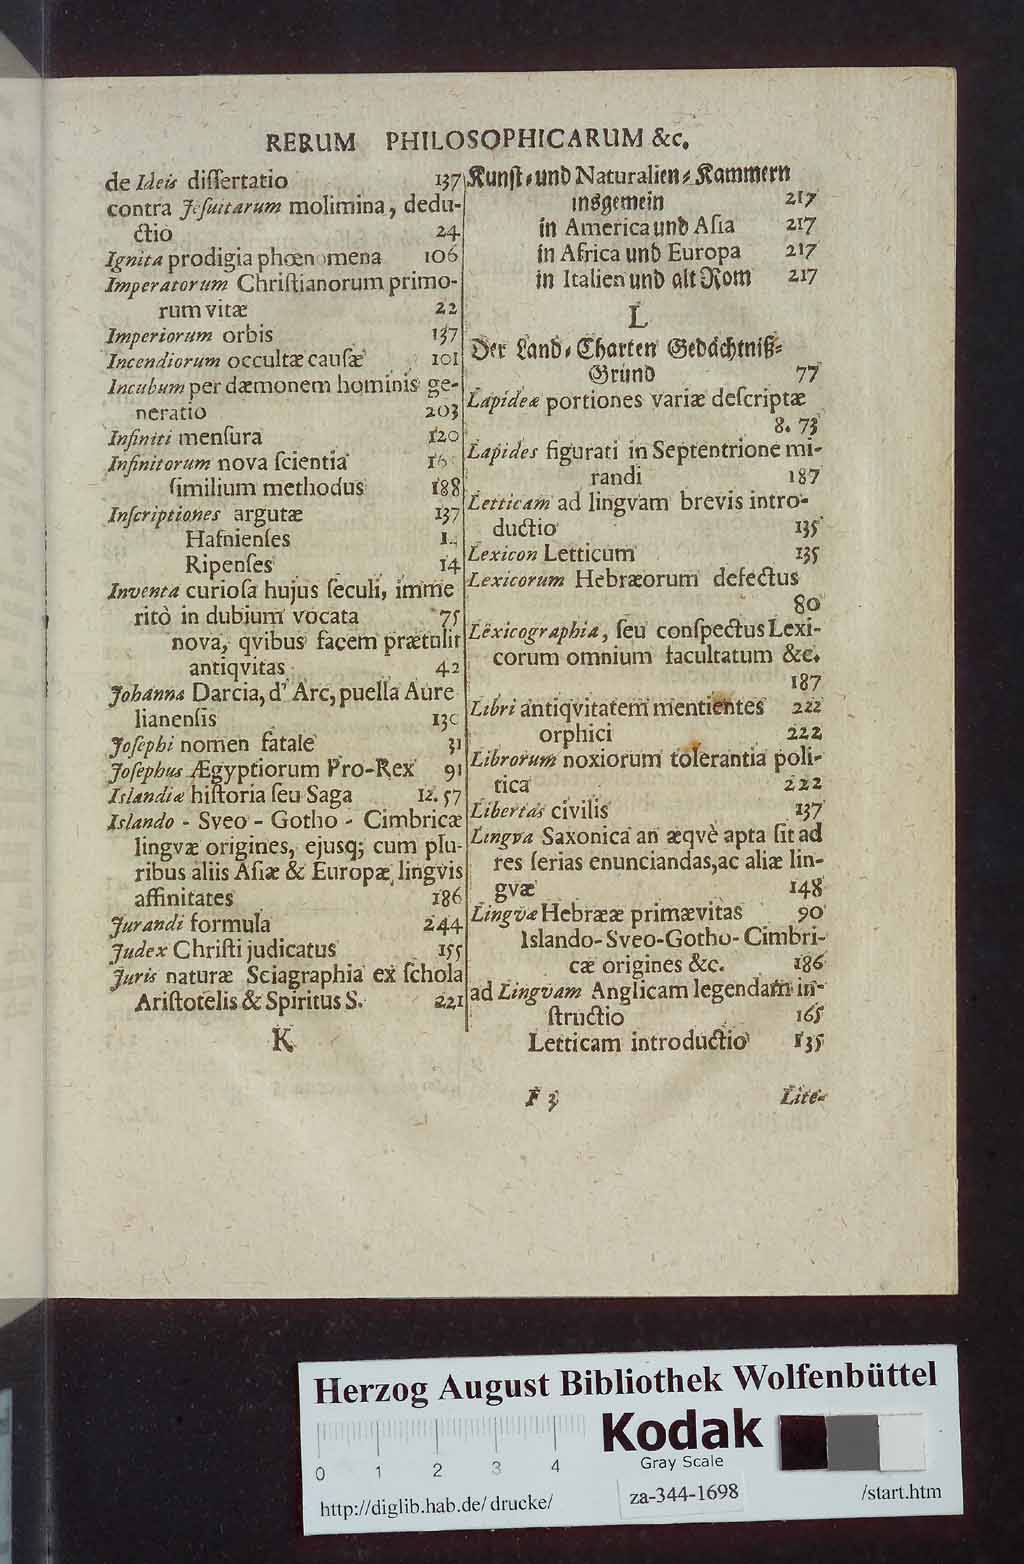 RERUM PHILOSOPHICARUM &c.
de Ideis diſſertatio 137
contra Jeſuitarum molimina, dedu-
ctio 24
Ignita prodigia phœnomena 106
Imperatorum Chriſtianorum primo-
rum vitæ 22
Imperiorum orbis 137
Incendiorum occultæ cauſæ 101
Incubum per dæmonem hominis ge-
neratio 203
Infiniti menſura 120
Infinitorum nova ſcientia
ſimilium methodus 188
Inſcriptiones argutæ 137
Hafnienſes
Ripenſes 14
Inventa curioſa hujus ſeculi, imme
ritò in dubium vocata 75
nova, qvibus facem prætulit
antiqvitas 42
Johanna Darcia, d' Arc, puella Aure
lianenſis 130
Joſephi nomen fatale 31
Joſephus Ægyptiorum Pro-Rex 91
Islandiæ hiſtoria ſeu Saga 12. 57
Islando - Sveo - Gotho - Cimbricæ
lingvæ origines, ejusq; cum plu-
ribus aliis Aſiæ & Europæ lingvis
affinitates 186
Jurandi formula 244
Judex Chriſti judicatus 155
Juris naturæ Sciagraphia ex ſchola
Ariſtotelis & Spiritus S. 221
K
Kunſt⸗und Naturalien⸗Kammern
insgemein 217
in America und Aſia 217
in Africa und Europa 217
in Italien und alt Rom 217
L
Der Land⸗Charten Gedächtniß⸗
Grund 77
Lapideæ portiones variæ deſcriptæ
8. 73
Lapides figurati in Septentrione mi-
randi 187
Letticam ad lingvam brevis intro-
ductio 135
Lexicon Letticum 135
Lexicorum Hebræorum defectus
80
Lexicographia, ſeu conſpectus Lexi-
corum omnium facultatum &c.
187
Libri antiqvitatem mentientes 222
orphici 222
Librorum noxiorum tolerantia poli-
tica 222
Libertas civilis 137
Lingva Saxonica an æqvè apta ſit ad
res ſerias enunciandas, ac aliæ lin-
gvæ 148
Lingvæ Hebrææ primævitas 90
Islando-Sveo-Gotho-Cimbri-
cæ origines &c. 186
ad Lingvam Anglicam legendam in-
ſtructio 165
Letticam introductio 135
F 3 Lite-
Herzog August Bibliothek Wolfenbüttel
Kodak
Gray Scale
0 1 2 3 4
http://diglib.hab.de/drucke/ za-344-1698 /start.htm